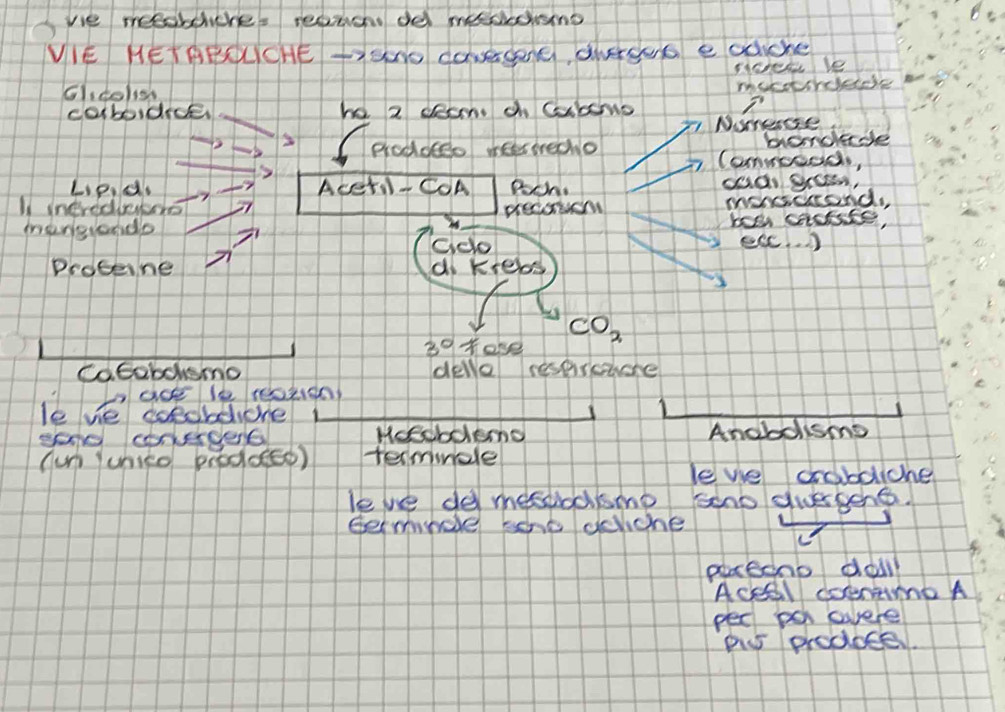 vie metaboliche = reazioni del metabolismo
VIE METABOLICHE → sono convergenti, divergenti e cicliche
ricrea le
macromolecole
Glicolisi
carboidrati
ha 2 atomi di Carbonio
Numerose
biomolecole
(amminoacidi,
acidi grassi,
monosaccaridi,
basi azotate,
ecc...)
Prodotto intermedio
Lipidi
li introduciamo
mangiando
Acetil-CoA
Pochi
precursori
Proteine
Ciclo
di Krebs
CO2
3° fase
della respirazione
Catabolismo
→ acc le reazioni
le vie cataboliche
sono convergenti
(un unico prodotto)
Metabolismo
terminale
Anabolismo
le vie anaboliche
sono divergenti.
le vie del metabolismo
terminale sono cicliche
partono dall'
Acetil coenzima A
per poi avere
più prodotti.